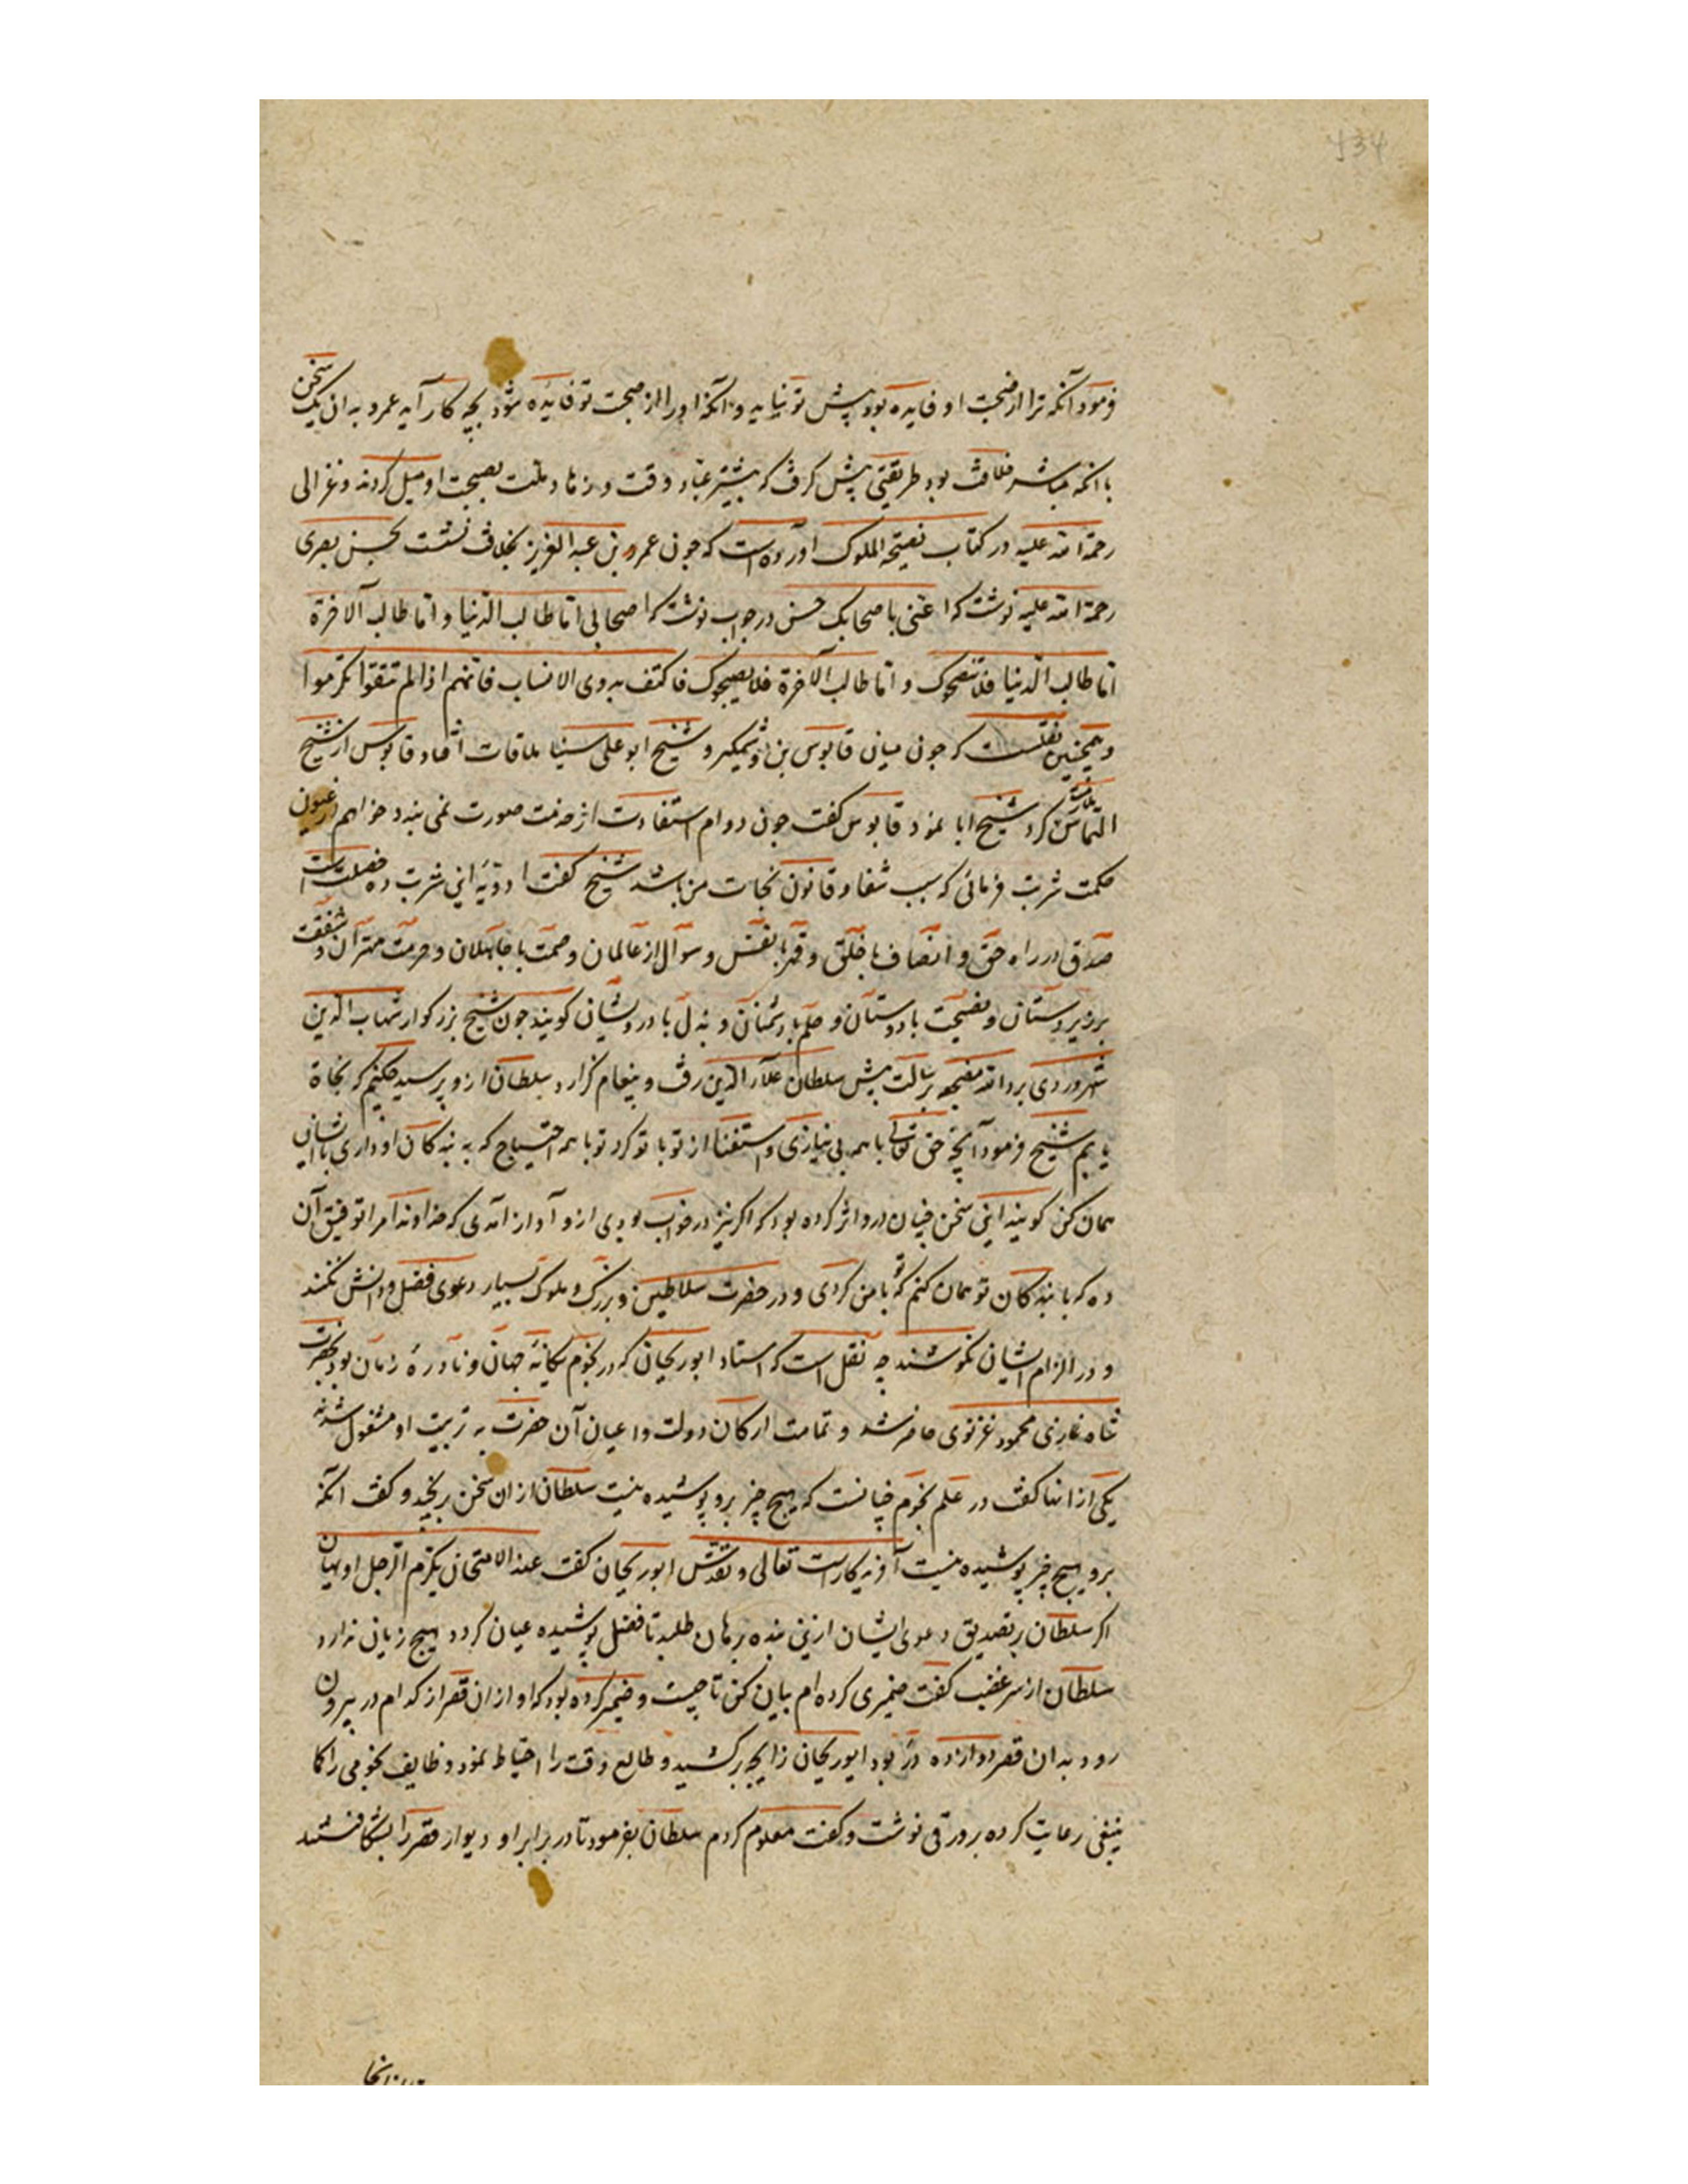 فرمود آنکه ترا از صحبت او فایده بود پیش تو نیاید و آنکه او را از صحبت تو فایده شود بچه کار آید عمرو بدان یک سخن
با آنکه مباشر خلافت بود طریقتی پیش گرفت که بیشتر عباد وقت و زهاد ملت بصحبت او میل کردند و غزالی
رحمة الله علیه در کتاب نصیحة الملوک آورده است که چون عمرو بن عبد العزیز بخلافت نشست بحسن بصری
رحمة الله علیه نوشت که اعنی باصحابک حسن در جواب نوشت که اصحابی اما طالب الدنیا و اما طالب الآخرة
اما طالب الدنیا فلا تنصحوک و اما طالب الآخرة فلا یصحبوک فاکتف بذوی الانساب فانهم اذا لم تتقوا تکرموا
و همچنین نقلست که چون میان قابوس بن وشمگیر و شیخ ابو علی سینا ملاقات افتاد قابوس از شیخ
التماس کرد شیخ ابا نمود قابوس گفت چون دوام استفادت از خدمت صورت نمی بندد خواهم از عیون
حکمت شربت فرمائی که سبب شفا و قانون نجات من باشد شیخ گفت ادویه این شربت ده خصلت است
صدق در راه حق و انصاف با خلق و قهر با نفس و سؤال از عالمان و صمت با جاهلان و حرمت مهتران و شفقت
بر زیردستان و نصیحت با دوستان و حلم با دشمنان و بذل با درویشان گویند چون شیخ بزرگوار شهاب الدین
سهروردی برد الله مضجعه برسالت پیش سلطان علاء الدین رفت و پیغام گزارد سلطان ازو پرسید چکنم که نجاة
یابم شیخ فرمود آنچه حق تعالی با همه بی نیازی و استغنا از تو با تو کرد تو با همه احتیاج که به بندگان او داری با ایشان
همان کن گویند این سخن چنان درو اثر کرده بود که اگر نیز در خواب بودی ازو آواز آمدی که خداوندا مرا توفیق آن
ده که با بندگان تو همان کنم که تو با من کردی و در حضرت سلاطین و بزرگ و ملوک بسیار دعوی فضل و دانش نکنند
و در الزام ایشان نکوشند چه نقل است که استاد ابو ریحان که در نجوم یگانه جهان و نادره زمان بود بحضرت
شاه غازی محمود غزنوی حاضر شد و تمامت ارکان دولت و اعیان آن حضرت به تربیت او مشغول شدند
یکی از انها گفت در علم نجوم چنانست که هیچ چیز برو پوشیده نیست سلطان از ان سخن برنجید و گفت آنکه
برو هیچ چیز پوشیده نیست آفریدگارست تعالی و تقدس ابو ریحان گفت عند الامتحان یکرم الرجل او یهان
اگر سلطان بر تصدیق دعوی ایشان ازین بنده برهان طلبد تا فضل پوشیده عیان گردد هیچ زیان ندارد
سلطان از سر غضب گفت ضمیری کرده ام بیان کن تا چیست و ضمیر کرده بود که او از ان قصر از کدام در بیرون
رود بدان قصر دوازده در بود ابو ریحان زایجه برکشید و طالع وقت را احتیاط نمود وظایف نجومی را کما
ینبغی رعایت کرده بر ورقی نوشت و گفت معلوم کردم سلطان بفرمود تا در برابر او دیوار قصر را بشکافتند